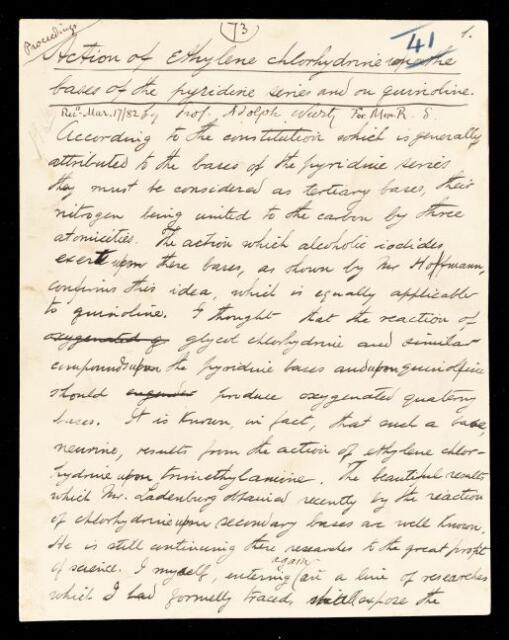 Proceedings
73
41
1.
Action of Ethylene chlorhydrine upon the
bases of the pyridine series and on quinoline.
Recd. Mar. 17/82 by Prof. Adolph Wurtz For. Mem. R. S.
According to the constitution which is generally
attributed to the bases of the pyridine series
they must be considered as tertiary bases, their
nitrogen being united to the carbon by three
atomicities. The action which alcoholic iodides
exert upon these bases, as shown by Mr Hoffmann,
confirms this idea, which is equally applicable
to quinoline. I thought that the reaction of
oxygenated glycol chlorhydrine and similar
compounds upon the pyridine bases and upon quinoline
should engender produce oxygenated quaterny
bases. It is known, in fact, that such a base,
neurine, results from the action of ethylene chlor-
hydrine upon trimethylamine. The beautiful results
which Mr. Ladenburg obtained recently by the reaction
of chlorhydrine upon secondary bases are well known.
He is still continuing these researches to the great profit
of science. I myself, entering again on a line of researches
which I had formerly traced, shall expose the